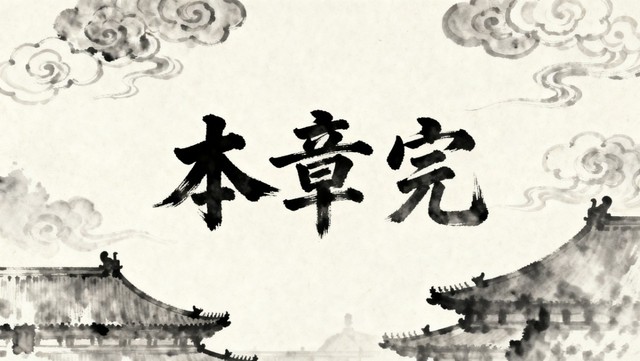 本章完